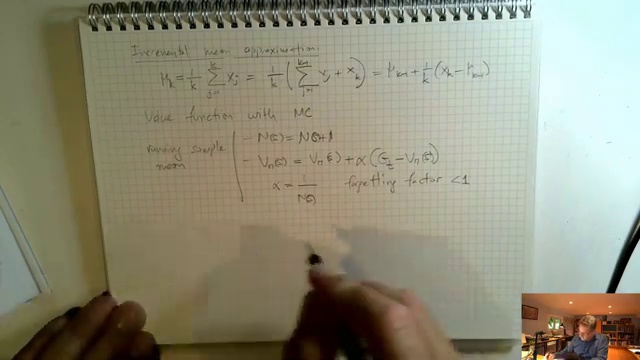 Incremental mean approximation:
μ_k = 1/k ∑_{j=1}^{k} x_j = 1/k ( ∑_{j=1}^{k-1} x_j + x_k ) = μ_{k-1} + 1/k (x_k − μ_{k-1})
Value function with MC
running sample mean
− N(s) = N(s)+1
− V_π(s) = V_π(s) + α (G_t − V_π(s))
α = 1/N(s) forgetting factor < 1